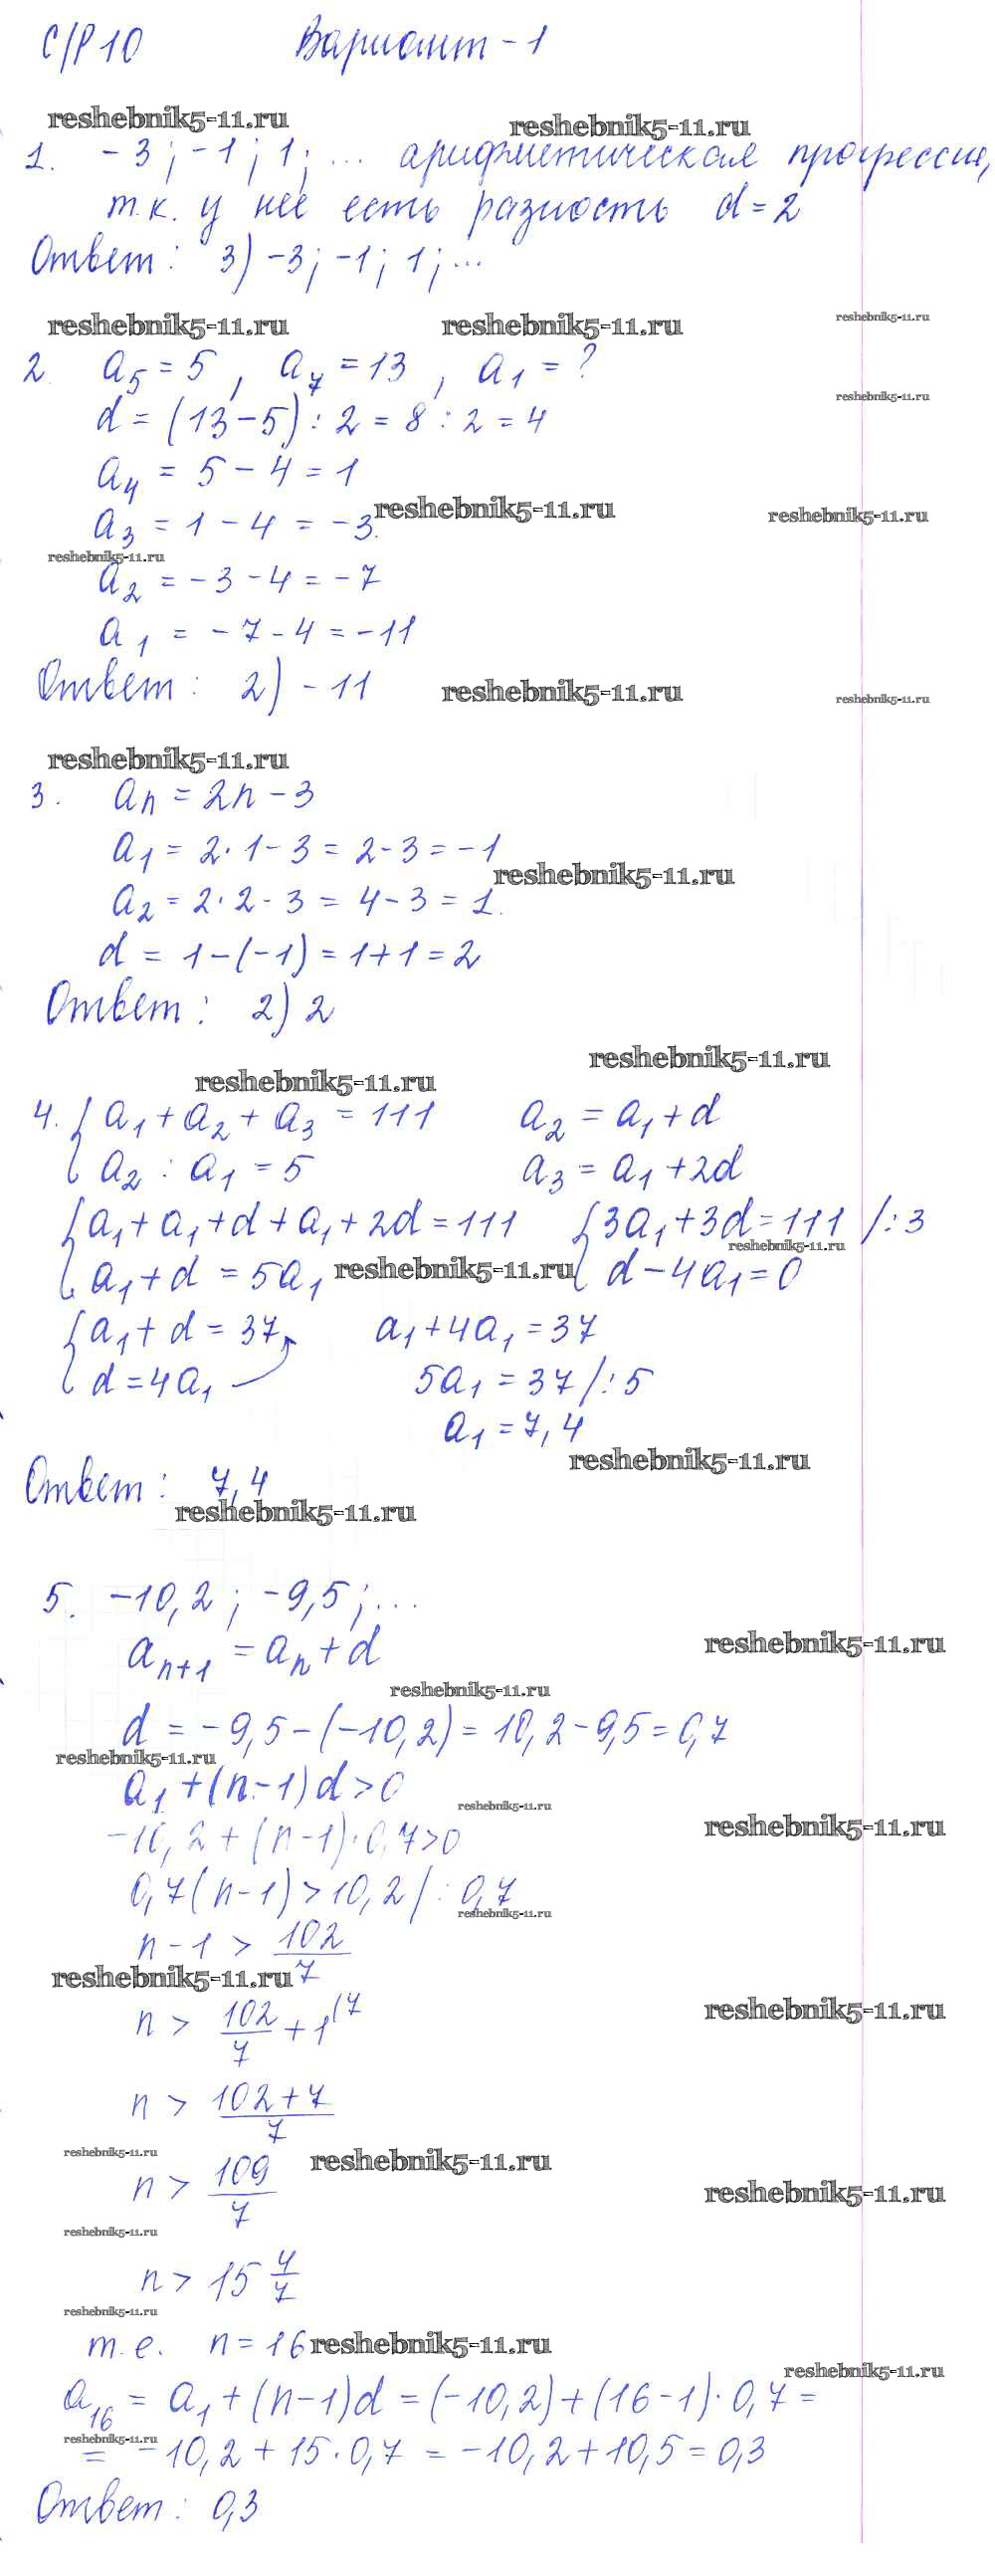 С/Р 10 Вариант - 1
reshebnik5-11.ru reshebnik5-11.ru
1. -3; -1; 1; ... арифметическая прогрессия,
т.к. у неё есть разность d = 2
Ответ: 3) -3; -1; 1; ...
reshebnik5-11.ru reshebnik5-11.ru reshebnik5-11.ru
2. a5 = 5, a7 = 13, a1 = ?
reshebnik5-11.ru
d = (13-5) : 2 = 8 : 2 = 4
a4 = 5 - 4 = 1
a3 = 1 - 4 = -3. reshebnik5-11.ru reshebnik5-11.ru
reshebnik5-11.ru
a2 = -3 - 4 = -7
a1 = -7 - 4 = -11
Ответ: 2) -11 reshebnik5-11.ru reshebnik5-11.ru
reshebnik5-11.ru
3. an = 2n - 3
a1 = 2·1 - 3 = 2 - 3 = -1
reshebnik5-11.ru
a2 = 2·2 - 3 = 4 - 3 = 1.
d = 1 - (-1) = 1 + 1 = 2
Ответ: 2) 2
reshebnik5-11.ru reshebnik5-11.ru
4. { a1 + a2 + a3 = 111 a2 = a1 + d
a2 : a1 = 5 a3 = a1 + 2d
{ a1 + a1 + d + a1 + 2d = 111 { 3a1 + 3d = 111 /:3
reshebnik5-11.ru
a1 + d = 5a1 reshebnik5-11.ru d - 4a1 = 0
{ a1 + d = 37 a1 + 4a1 = 37
d = 4a1 5a1 = 37 /:5
a1 = 7,4
reshebnik5-11.ru
Ответ: 7,4
reshebnik5-11.ru
5. -10,2; -9,5; ...
an+1 = an + d reshebnik5-11.ru
reshebnik5-11.ru
d = -9,5 - (-10,2) = 10,2 - 9,5 = 0,7
reshebnik5-11.ru
a1 + (n-1)d > 0
reshebnik5-11.ru
-10,2 + (n-1)·0,7 > 0 reshebnik5-11.ru
0,7(n-1) > 10,2 / : 0,7
reshebnik5-11.ru
n - 1 > 102/7
reshebnik5-11.ru
n > 102/7 + 1(7 reshebnik5-11.ru
n > 102+7/7
reshebnik5-11.ru reshebnik5-11.ru
n > 109/7 reshebnik5-11.ru
reshebnik5-11.ru
n > 15 4/7
reshebnik5-11.ru
т.е. n = 16 reshebnik5-11.ru
reshebnik5-11.ru
a16 = a1 + (n-1)d = (-10,2) + (16-1)·0,7 =
reshebnik5-11.ru
= -10,2 + 15·0,7 = -10,2 + 10,5 = 0,3
Ответ: 0,3